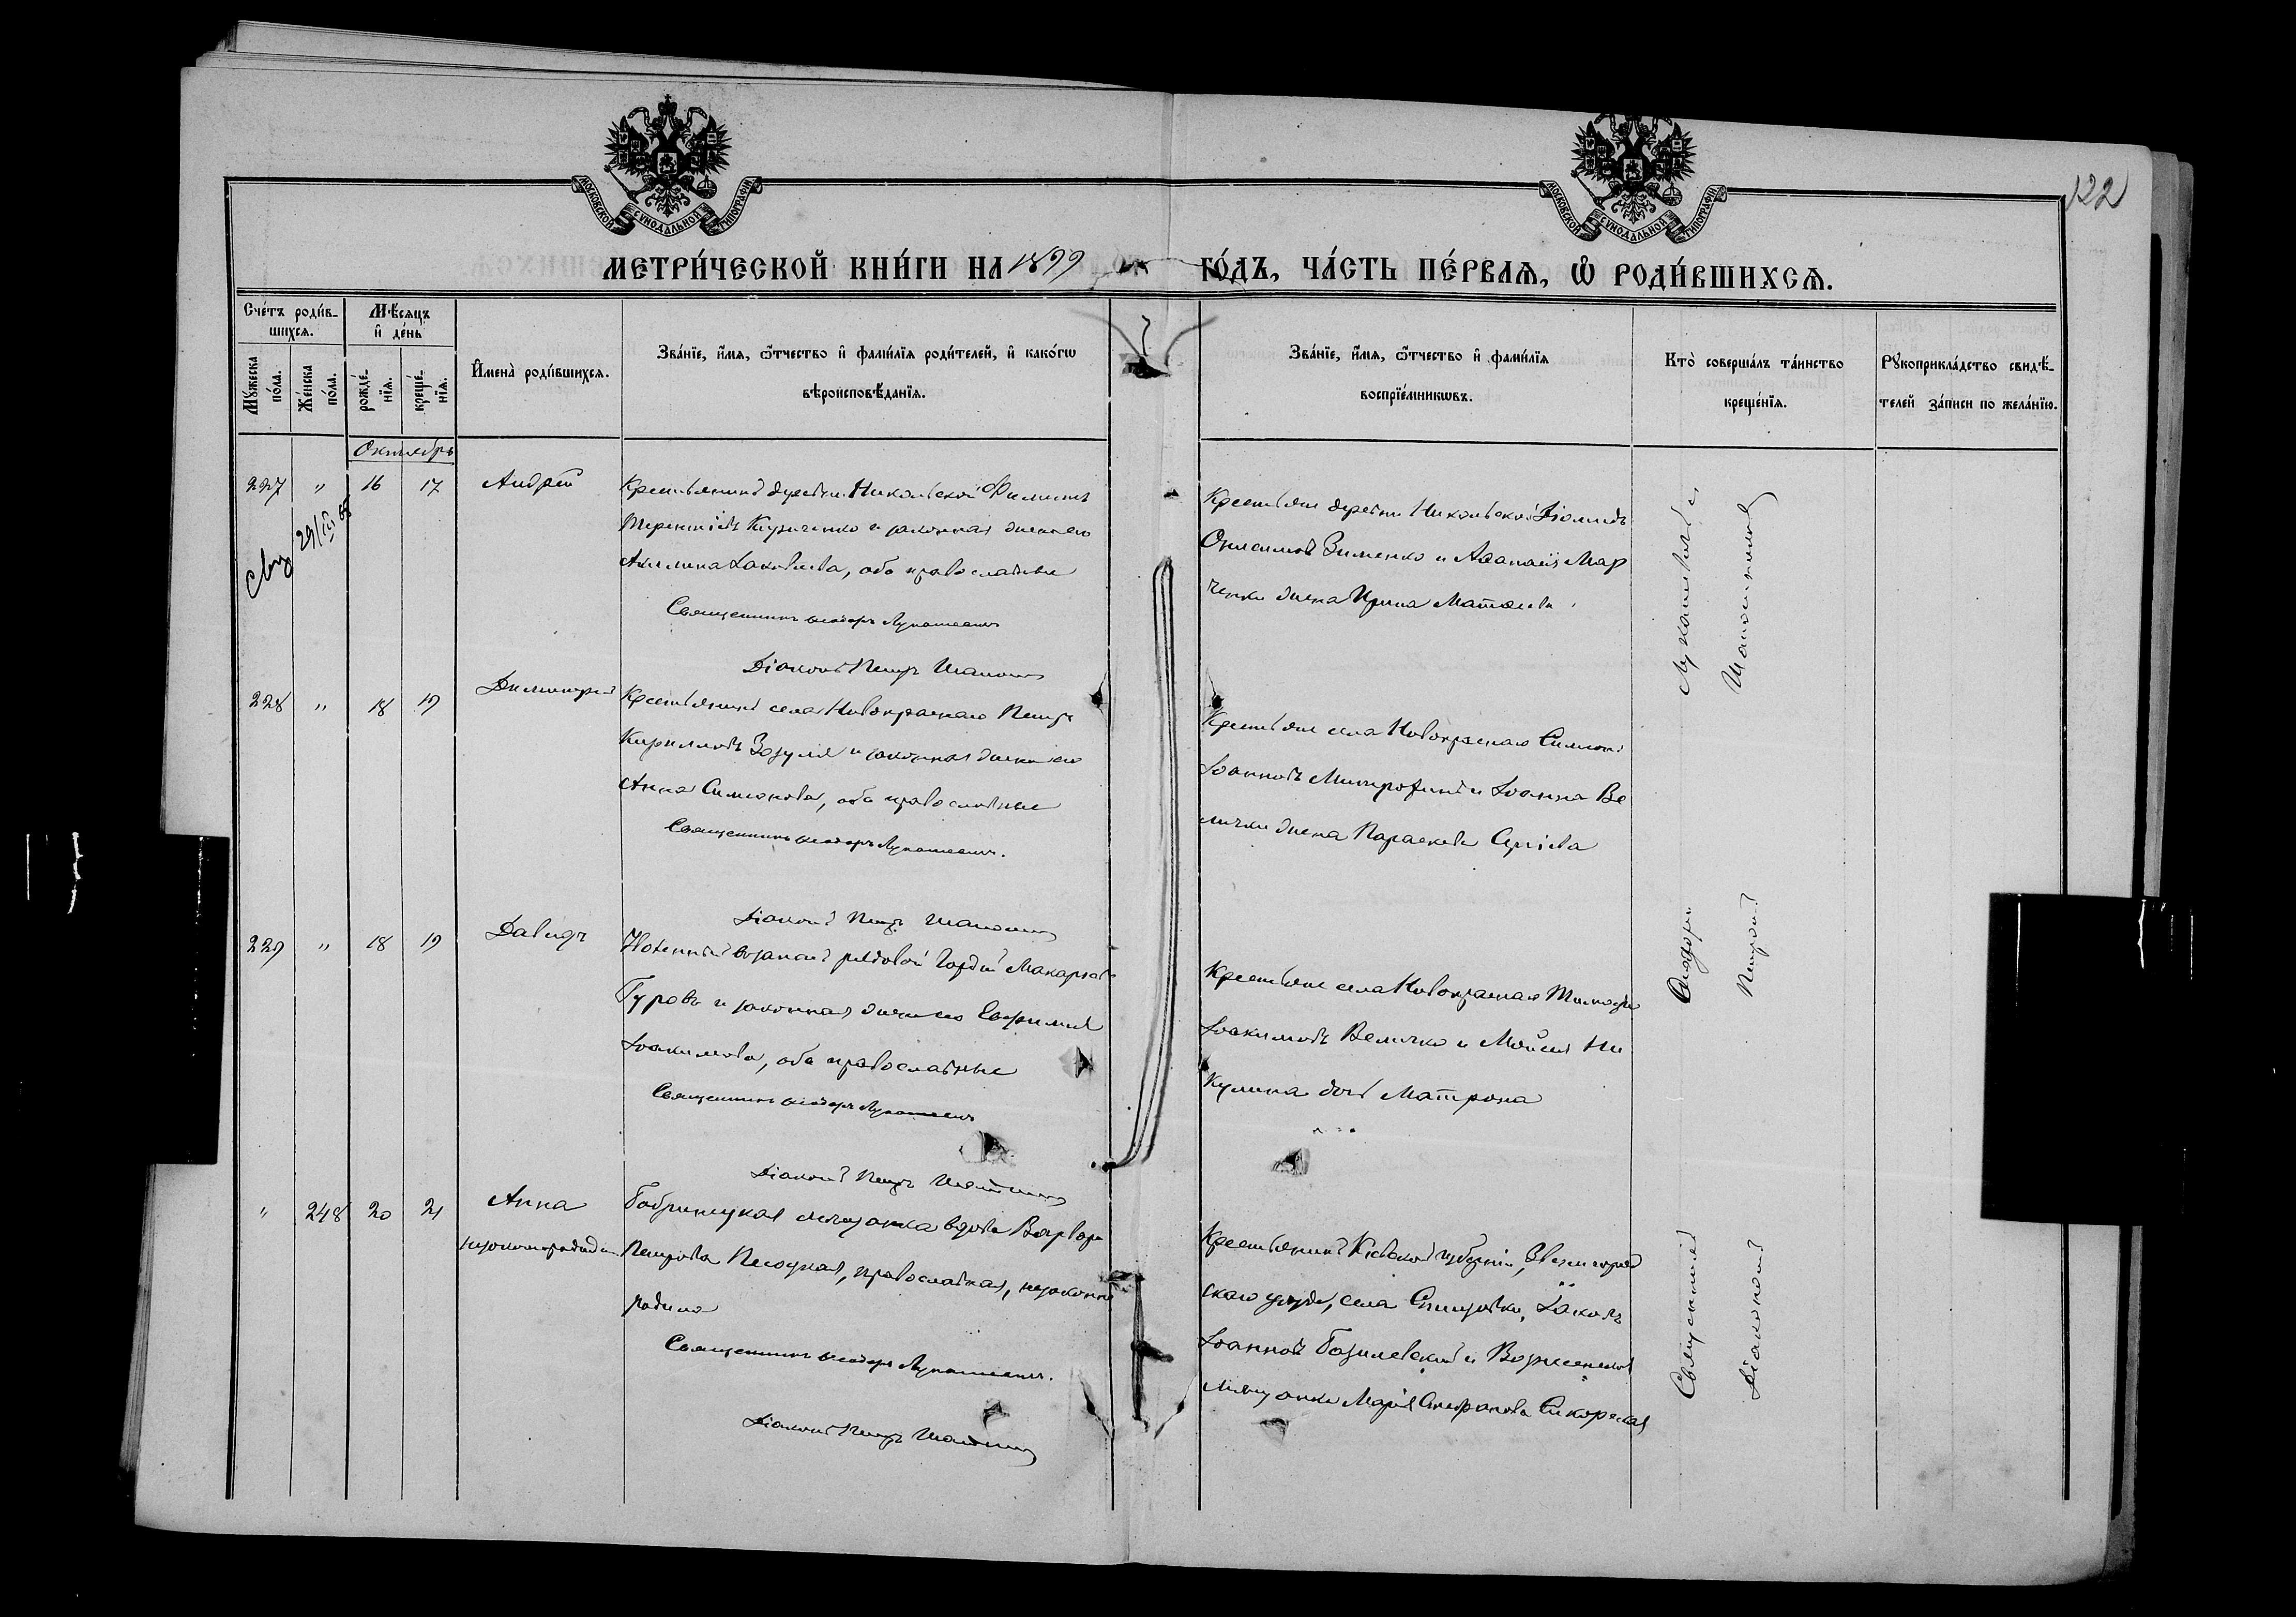 122
МОСКОВСКОЙ СѴНОДАЛЬНОЙ ТИПОГРАФІИ
МОСКОВСКОЙ СѴНОДАЛЬНОЙ ТИПОГРАФІИ
МЕТРИ́ЧЕСКОЙ КНИ́ГИ НА 1899 ГО́ДЪ, ЧА́СТЬ ПЕ́РВАѦ, Ѽ РОДИ́ВШИХСѦ.
Сче́тъ роди́в-
шихся.
Мѣ́сяцъ
и҆ де́нь
Мꙋ́жеска
по́ла.
Же́нска
по́ла.
рожде́-
нїя.
креще́-
нїя.
И҆мена̀ роди́вшихся.
Зва́нїе, и҆́мя, ѻ҆́тчество и҆ фами́лїя роди́телей, и҆ како́гѡ
вѣроисповѣ́данїя.
Зва́нїе, и҆́мя, ѻ҆́тчество и҆ фами́лїя
воспрїе́мникѡвъ.
Кто̀ соверша́лъ та́инство
креще́нїя.
Рꙋкоприкла́дство свидѣ́-
телей за́писи по жела́нїю.
Октябрь
227 " 16 17 Андрей
29/III 68
Крестьянинъ деревни Никольской Филиппъ
Терентіевъ Кириченко и законная жена его
Акилина Іаковлева, оба православные
Священникъ Ѳеодоръ Лукашевичъ
Діаконъ Петръ
Крестьяне деревни Никольской Діомидъ
Зименко и Аѳанасія Мар
ченки жена Ирина Матѳеева
228 " 18 19 Димитрій
Крестьянинъ села Новокраснаго Петръ
Кирилловъ Зозуля и законная жена его
Анна Симеонова, оба православные
Священникъ Ѳеодоръ Лукашевичъ.
Діаконъ Петръ
Крестьяне села Новокраснаго Симеонъ
Іоанновъ и Іоанна Ве
лички жена Параскева Сергіева
229 " 18 19 Давидъ
запасный рядовой Гордій Макаріевъ
Гуровъ и законная жена его Евфимія
Іоакимова, оба православные
Священникъ Ѳеодоръ Лукашевичъ
Діаконъ Петръ
Крестьяне села Новокраснаго Тимофей
Іоакимовъ Величко и Моисея Ни
кулина дочь Матрона
" 248 20 21 Анна
незаконнорожден.
Бобринецкая мѣщанка вдова Варвара
Петрова православная, незаконно
родила
Священникъ Ѳеодоръ Лукашевичъ.
Діаконъ Петръ
Крестьянинъ Кіевской губерніи, Звенигород
скаго уѣзда, села Іаковъ
Іоанновъ Базилевскій и Вознесенская
мѣщанка Марія Стефанова Сикорская
Священникъ Ѳеодоръ Лукашевичъ съ
Діакономъ Петромъ